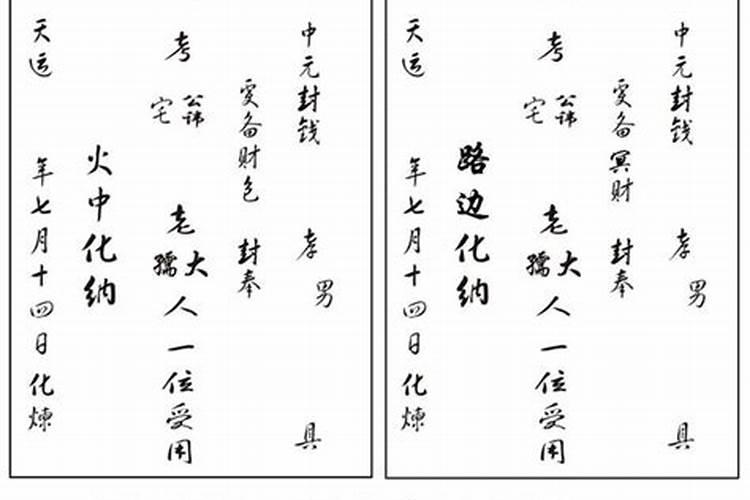 中元封钱 孝男 具
爰备财色 封奉
考 公讳 宅 老大孺人一位受用
火中化纳
天运 年七月十四日化煉
中元封钱 孝男 具
爰备冥财 封奉
考 公讳 宅 老大孺人一位受用
路边化纳
天运 年七月十四日化煉